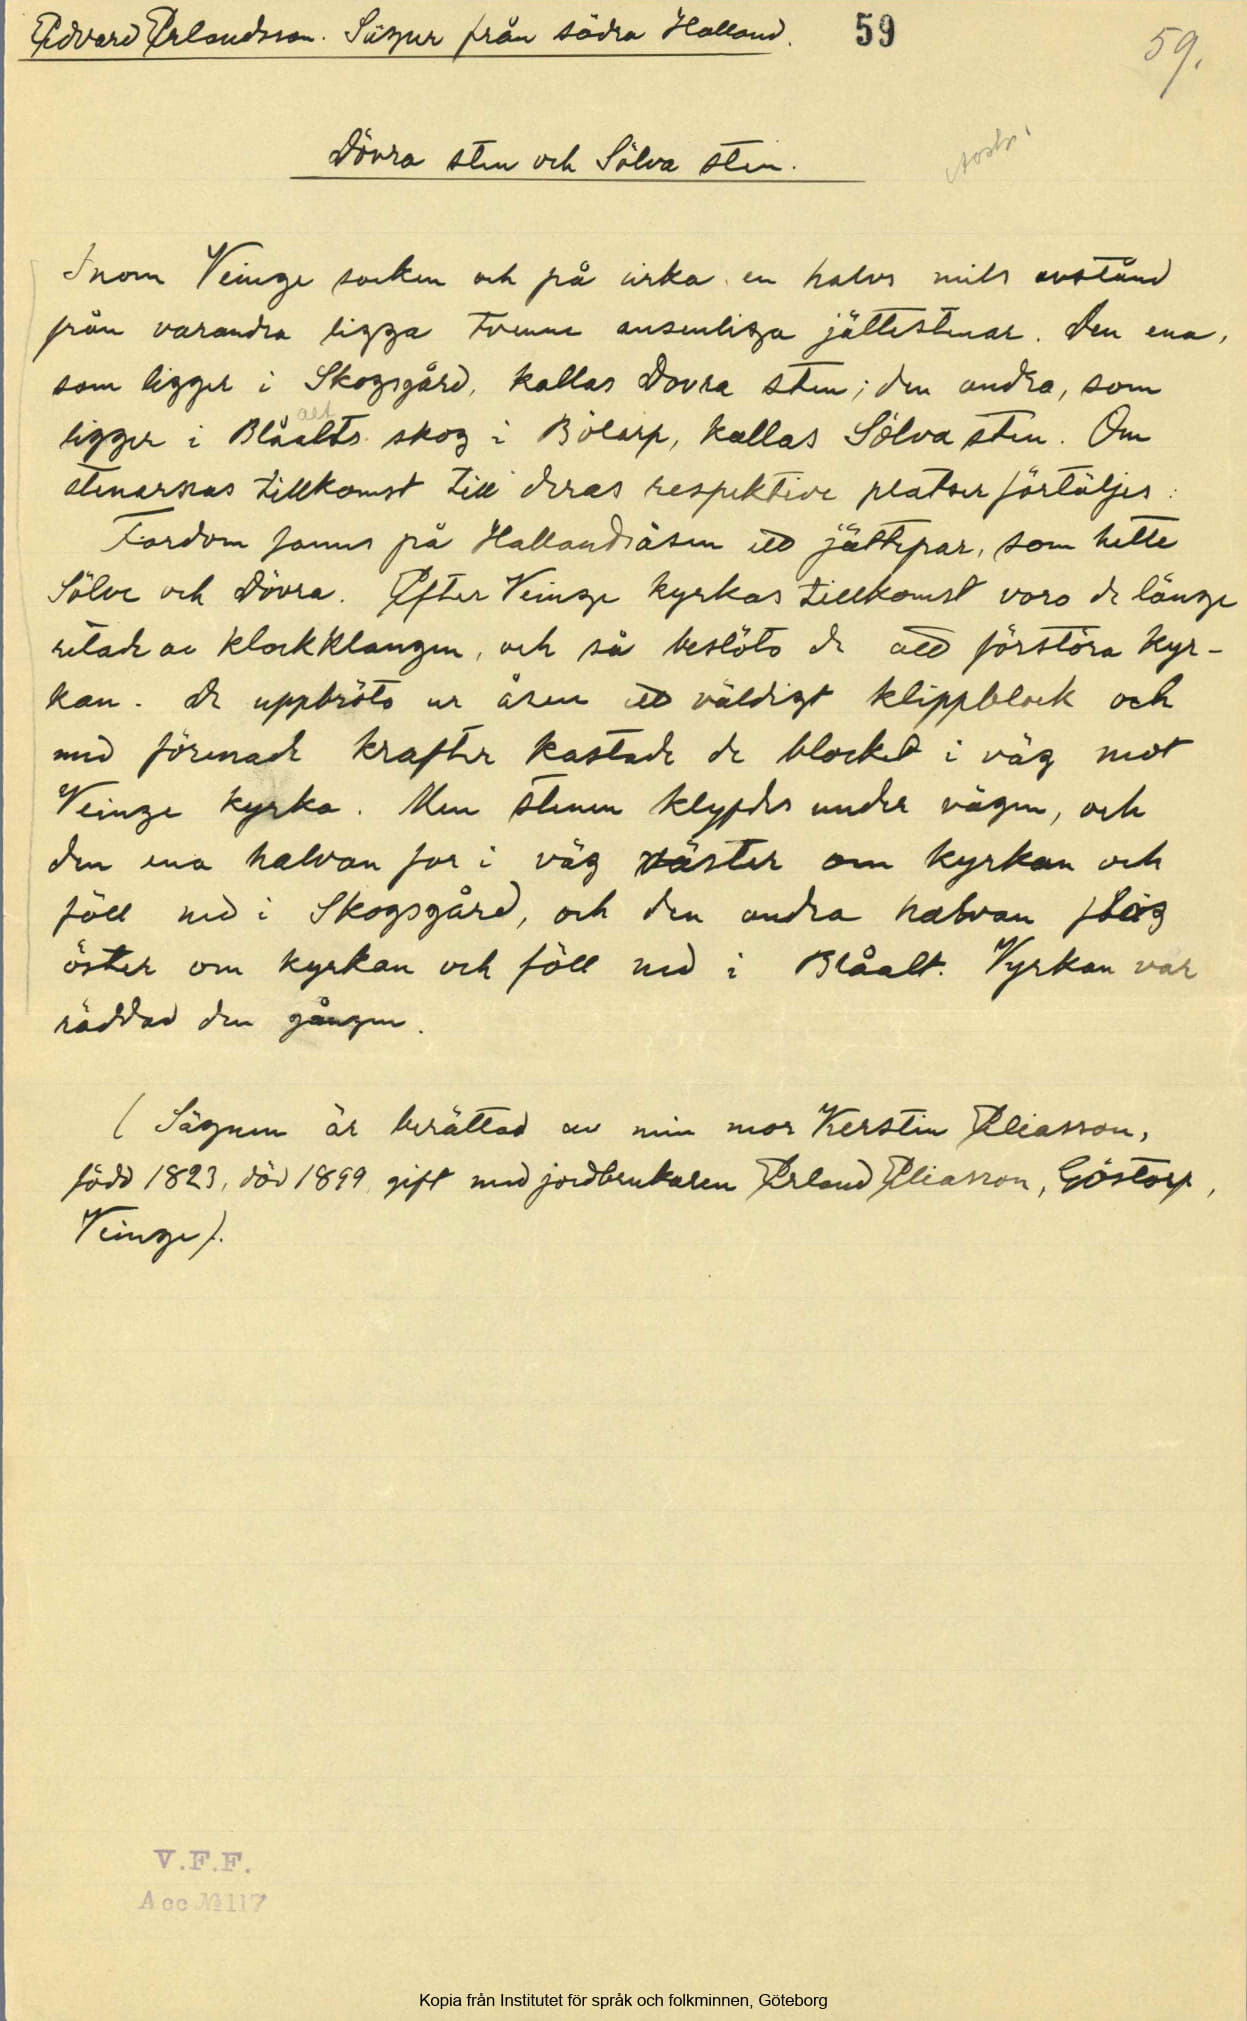 Edvard Erlandsson. Sägner från södra Halland. 59 59.
Dövra sten och Sölva sten.
Inom Veinge socken och på cirka en halvs mils avstånd
från varandra ligga tvenne ansenliga jättestenar. Den ena,
som ligger i Skogsgård, kallas Dovra sten; den andra, som
alt
ligger i Blåalts skog i Bölarp, kallas Sölva sten. Om
stenarnas tillkomst till deras respektive platser förtäljes:
Fordom fanns på Hallandsåsen ett jättepar, som hette
Sölve och Dövra. Efter Veinge kyrkas tillkomst voro de länge
retade av klockklangen, och så beslöto de att förstöra kyr-
kan. De uppbröto ur åsen ett väldigt klippblock och
med förenade krafter kastade de blocket i väg mot
Veinge kyrka. Men stenen klyfdes under vägen, och
den ena halvan for i väg väster om kyrkan och
föll ned i Skogsgård, och den andra halvan flög
öster om kyrkan och föll ned i Blåalt. Kyrkan var
räddad den gången.
(Sägnen är berättad av min mor Kerstin Eliasson,
född 1823, död 1899, gift med jordbrukaren Erland Eliasson, Göstorp,
Veinge).
V.F.F.
Acc № 117
Kopia från Institutet för språk och folkminnen, Göteborg